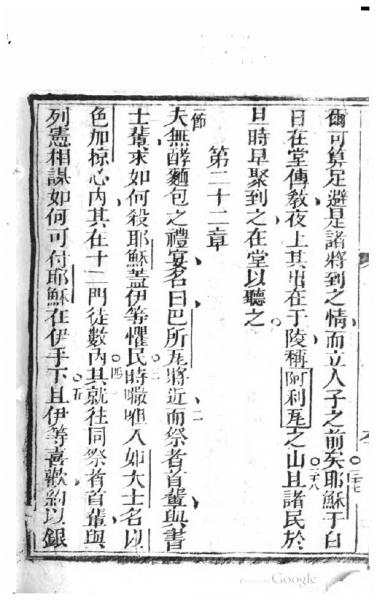 爾可算足避是諸將到之情而立人子之前矣三十七耶穌于白
日在堂傳教夜上其出在于陵稱阿利瓦之山三十八且諸民於
旦時早聚到之在堂以聽之
第二十二章
一節夫無酵麵包之禮宴名曰巴所瓦將近二而祭者首輩與書
士輩求如何殺耶穌蓋伊等懼民三時㘔呾入如大士名以
色加掠心內其在十二門徒數內四其就往同祭者首輩與
列憲相謀如何可付耶穌在伊手下五且伊等喜歡約以銀
Google